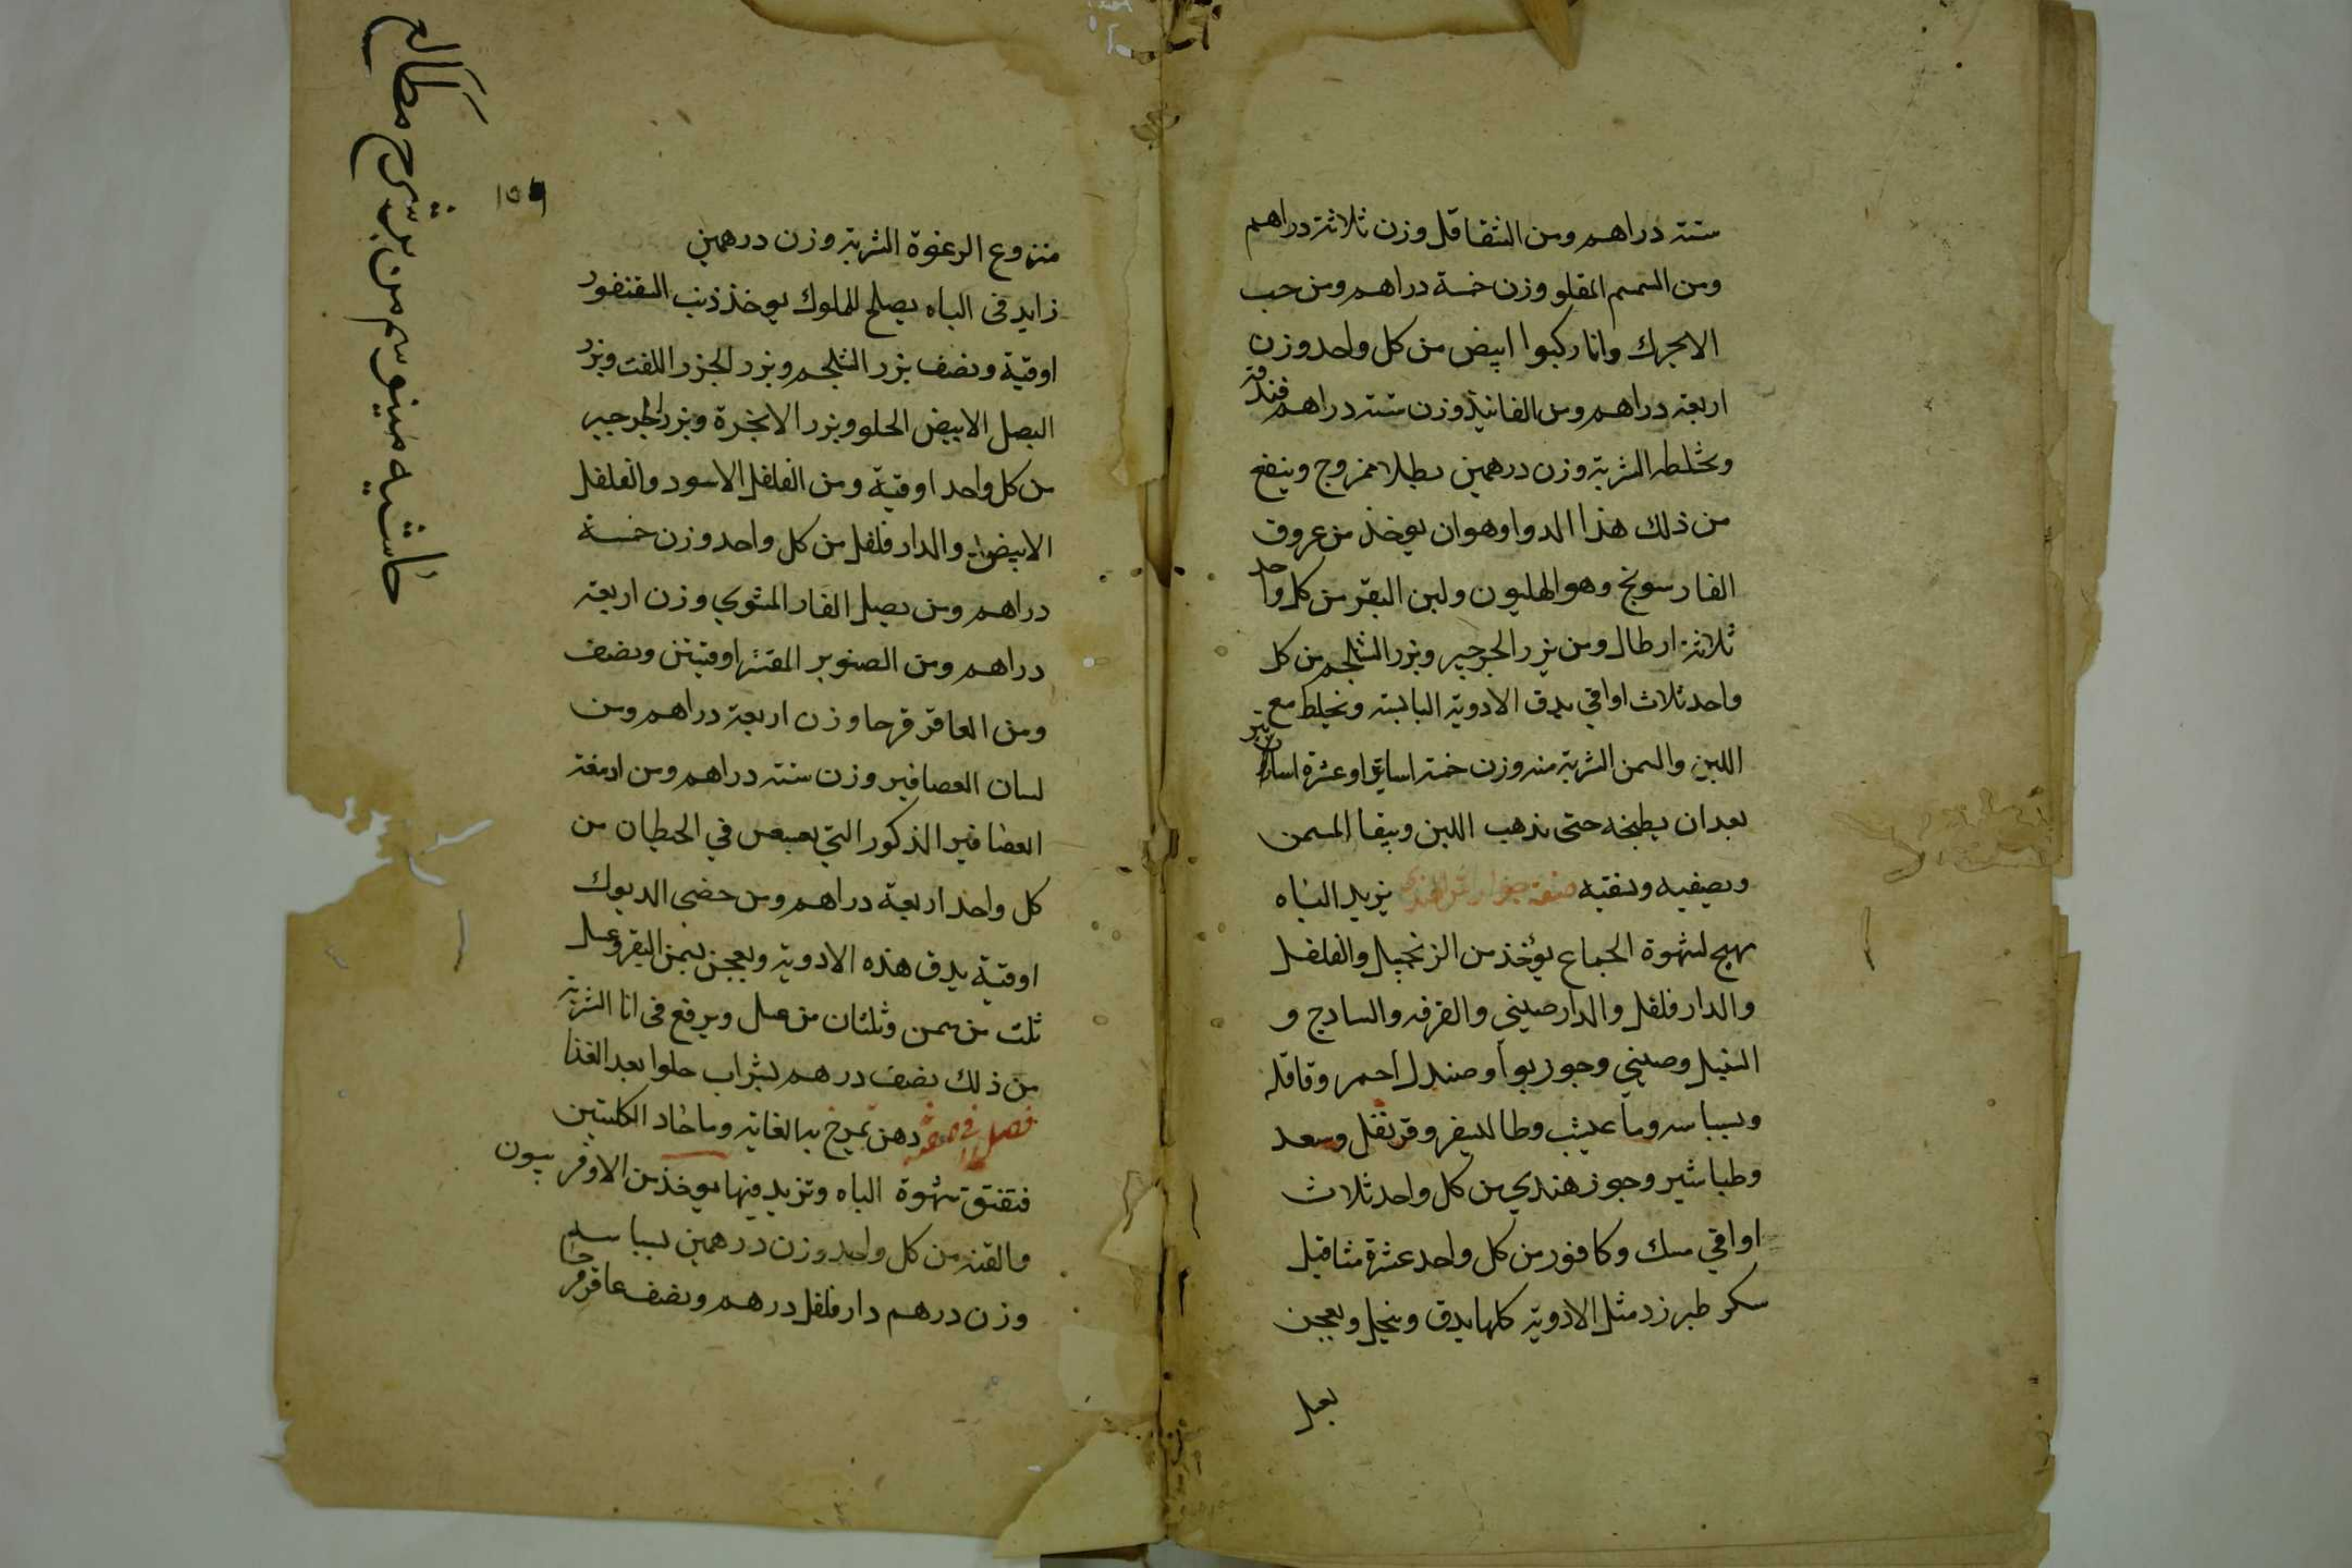 ستة دراهم ومن الشقاقل وزن ثلاثة دراهم
ومن السمسم المقلو وزن خمسة دراهم ومن حب
الابجرك وانا ركبوا ابيض من كل واحد وزن
اربعة دراهم ومن الفانيذ وزن ستة دراهم
وتخلط الشربة وزن درهمين بطلا ممزوج وينفع
من ذلك هذا الدوا وهو ان يوخذ من عروق
الفارسونج وهو الهليون ولبن البقر من كل واحد
ثلاثة ارطال ومن بزر الجرجير وبزر الشلجم من كل
واحد ثلاث اواقي يدق الادوية اليابسة ونخلط مع
اللبن والسمن الشربة منه وزن خمسة اساتير او عشرة اساتير
بعد ان يطبخه حتى يذهب اللبن ويبقا السمن
ويصفيه وينقيه صفة يزيد الباه
يهيج لشهوة الجماع يؤخذ من الزنجبيل والفلفل
والدار فلفل والدارصيني والقرفه والسادج و
السنبل وصيني وجوزبوا وصندل احمر وقاقله
وبسباسه وقرنفل وسعد
وطباشير وجوز هندي من كل واحد ثلاث
اواقي مسك وكافور من كل واحد عشرة مثاقيل
سكر طبرزد مثل الادوية كلها يدق وينخل ويعجن
بعسل
١٥٩
منزوع الرغوة الشربة وزن درهمين
زايد في الباه يصلح للملوك يوخذ ذنب السقنقور
اوقية ونصف بزر الشلجم وبزر الجزر اللفت وبزر
البصل الابيض الحلو وبزر الانجرة وبزر الجرجير
من كل واحد اوقية ومن الفلفل الاسود والفلفل
الابيض والدار فلفل من كل واحد وزن خمسة
دراهم ومن بصل الفار المشوي وزن اربعة
دراهم ومن الصنوبر المقشر اوقيتين ونصف
ومن العاقر قرحا وزن اربعة دراهم ومن
لسان العصافير وزن ستة دراهم ومن ادمغة
العصافير الذكور التي في الحيطان من
كل واحد اربعة دراهم ومن خصى الديوك
اوقية يدق هذه الادوية ويعجن بسمن البقر وعسل
ثلث من سمن وثلثان من عسل ويرفع في انا الشربة
من ذلك نصف درهم بشراب حلوا بعد الغذا
فصل في دهن تمرخ به العانة وما حاد الكليتين
شهوة الباه وتزيد فيها يوخذ من الافربيون
والقنه من كل واحد وزن درهمين بسباسه
وزن درهم دار فلفل درهم ونصف عاقرقرحا
حاشيه من شرح مطالع